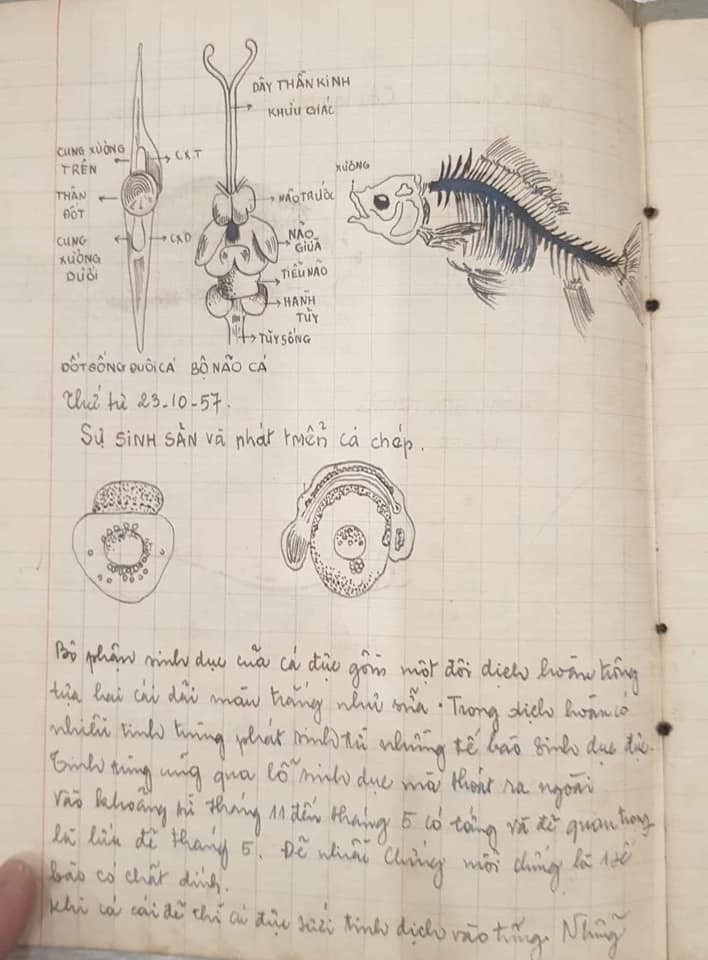 DÂY THẦN KINH
KHỨU GIÁC
CUNG XƯỜNG
TRÊN
CXT
THÂN
ĐỐT
CUNG
XƯỜNG
DƯỚI
CXD
NÃO TRƯỚC
NÃO
GIỮA
TIỂU NÃO
HÀNH
TỦY
TỦY SỐNG
XƯƠNG
ĐỐT SỐNG ĐUÔI CÁ BỘ NÃO CÁ
Thứ tư 23-10-57.
SỰ SINH SẢN và phát triển cá chép.
Bộ phận sinh dục của cá đực gồm một đôi dịch hoàn trông
tựa hai cái dải màu trắng như sữa. Trong dịch hoàn có
nhiều tinh trùng phát sinh từ những tế bào sinh dục đực.
Tinh trùng qua lỗ sinh dục mà thoát ra ngoài
vào khoảng từ tháng 11 đến tháng 5 có và đẻ quan trọng
là lứa đẻ tháng 5. Đẻ nhiều mỗi là 1 tế
bào có chất dính.
Khi cá cái đẻ thì cá đực tưới tinh dịch vào trứng. Những